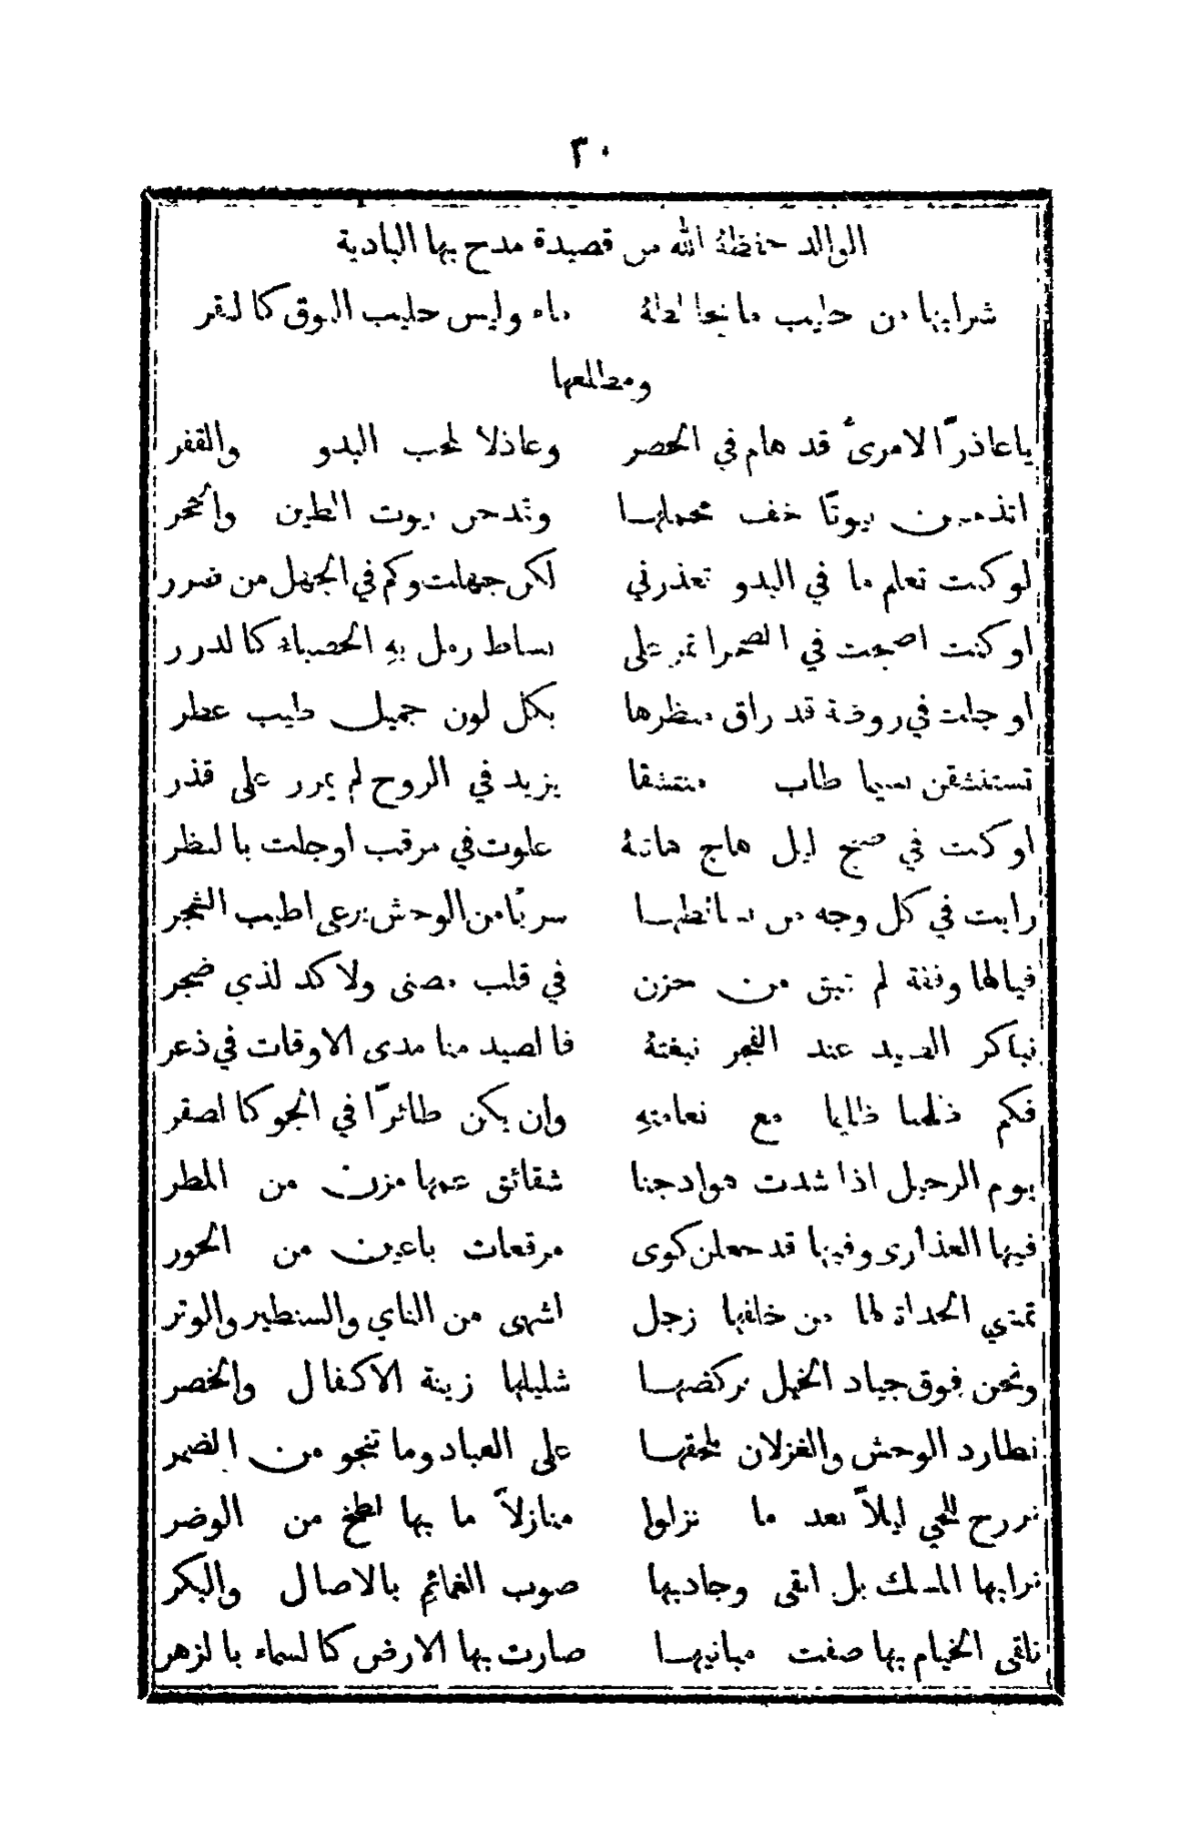 ٣٠
الوالد حفظهُ الله من قصيدة مدح بها البادية
شرابها من حليب ما يخالطهُ ماء وليس حليب النوق كالبقر
ومطلعها
ياعاذرًا لامرئٍ قد هام في الحضر وعاذلا لمحب البدو والقفر
اتذممن بيوتًا خف محملها وتمدحن بيوت الطين والحجر
لوكنت تعلم ما في البدو تعذرني لكن جهلت وكم في الجهل من ضرر
اوكنت اصبحت في الصحرا تمر على بساط رمل بهِ الحصباء كالدرر
اوجلت في روضة قد راق منظرها بكل لون جميل طيب عطر
تستنشقن نسيما طاب منتشقا يزيد في الروح لم يمرر على قذر
اوكنت في صبح ليل هاج هاتنهُ علوت في مرقب اوجلت بالنظر
رايت في كل وجه من بسائطها سربًا من الوحش يرعى اطيب الشجر
فيالها وقفة لم تبق من حزن في قلب مضنى ولا كد لذي ضجر
نباكر الصيد عند الفجر نبغتهُ فالصيد منا مدى الاوقات في ذعر
فكم ظلمنا ظليما مع نعامتهِ وان يكن طائرًا في الجو كالصقر
يوم الرحيل اذا شدت هوادجنا شقائق عمها مزن من المطر
فيها العذارى وفيها قد جعلن كوى مرقعات باعين من الحور
تمشي الحداة لها من خلفها زجل اشهى من الناي والسنطير والوتر
ونحن فوق جياد الخيل نركضها شليلها زينة الاكفال والخصر
نطارد الوحش والغزلان نلحقها على العباد وما تنجو من الضمر
نروح للحي ليلاً بعد ما نزلوا منازلاً ما بها لطخ من الوضر
ترابها المسك بل انقى وجادبها صوب الغمائمِ بالاصال والبكر
نلقى الخيام بها صفت مبانيها صارت بها الارض كالسماء بالزهر